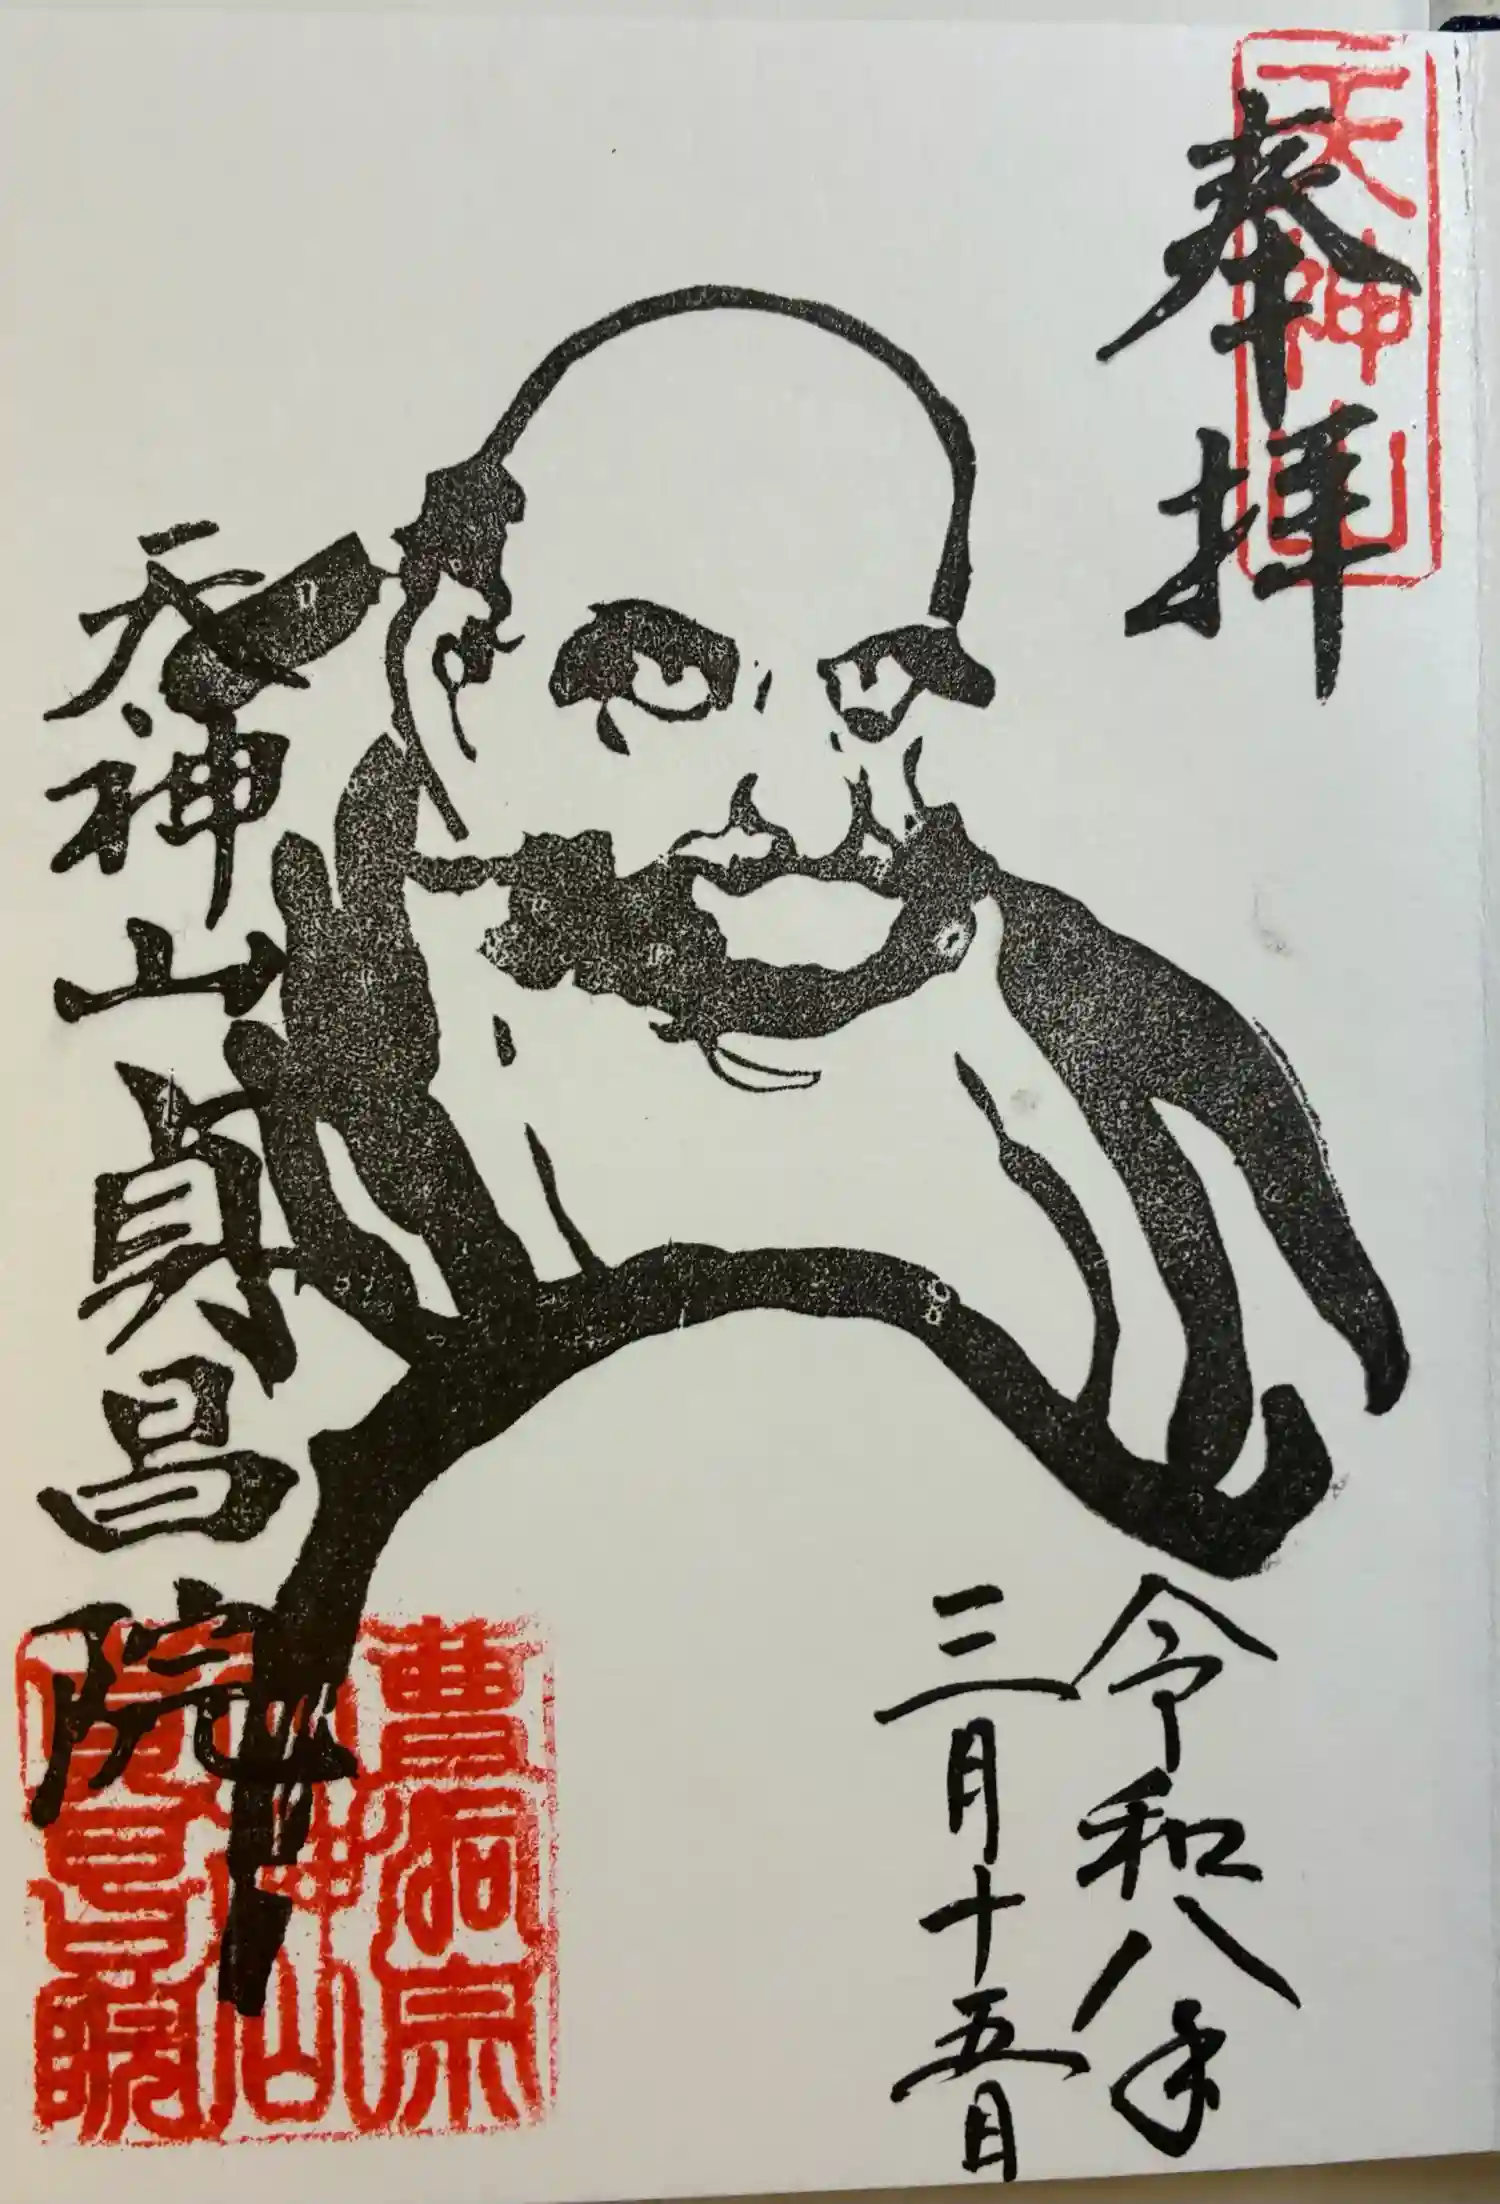 奉拝
天神山
令和八年
三月十五日
天神山貞昌院
曹洞宗
天神山
貞昌院